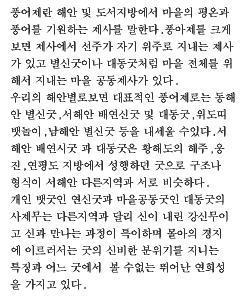 풍어제란 해안 및 도서지방에서 마을의 평온과
풍어를 기원하는 제사를 말한다.풍아제를 크게
보면 제사에서 선주가 자기 위주로 지내는 제사
가 있고 별신굿이나 대동굿처럼 마을 전체를 위
해서 지내는 마을 공동제사가 있다.
우리의 해안별로보면 대표적인 풍어제로는 동해
안 별신굿,서해안 배연신굿 및 대동굿,위도띠
뱃놀이,남해안 별신굿 등을 내세울 수있다.서
해안 배연시굿 과 대동굿은 황해도의 해주,옹
진,연평도 지방에서 성행하던 굿으로 구조나
형식이 서해안 다른지역과 서로 비슷하다.
개인 뱃굿인 연신굿과 마을공동굿인 대동굿의
사제무는 다른지역과 달리 신이 내린 강신무이
고 신과 만나는 과정이 특이하며 몰아의 경지
에 이르러서는 굿의 신비한 분위기를 지니는
특징과 어느 굿에서 볼 수없는 뛰어난 연희성
을 가지고 있다.